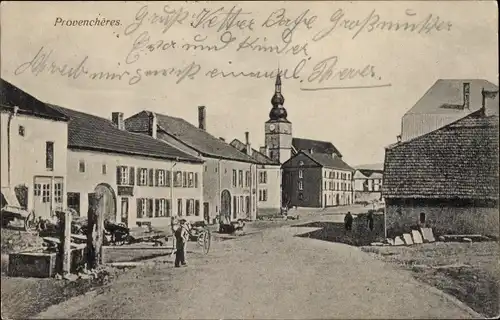 Provenchères.
Gruß Kette Base Großmutter
Eva und Kinder
Schreib mir gewiß einmal Therer.